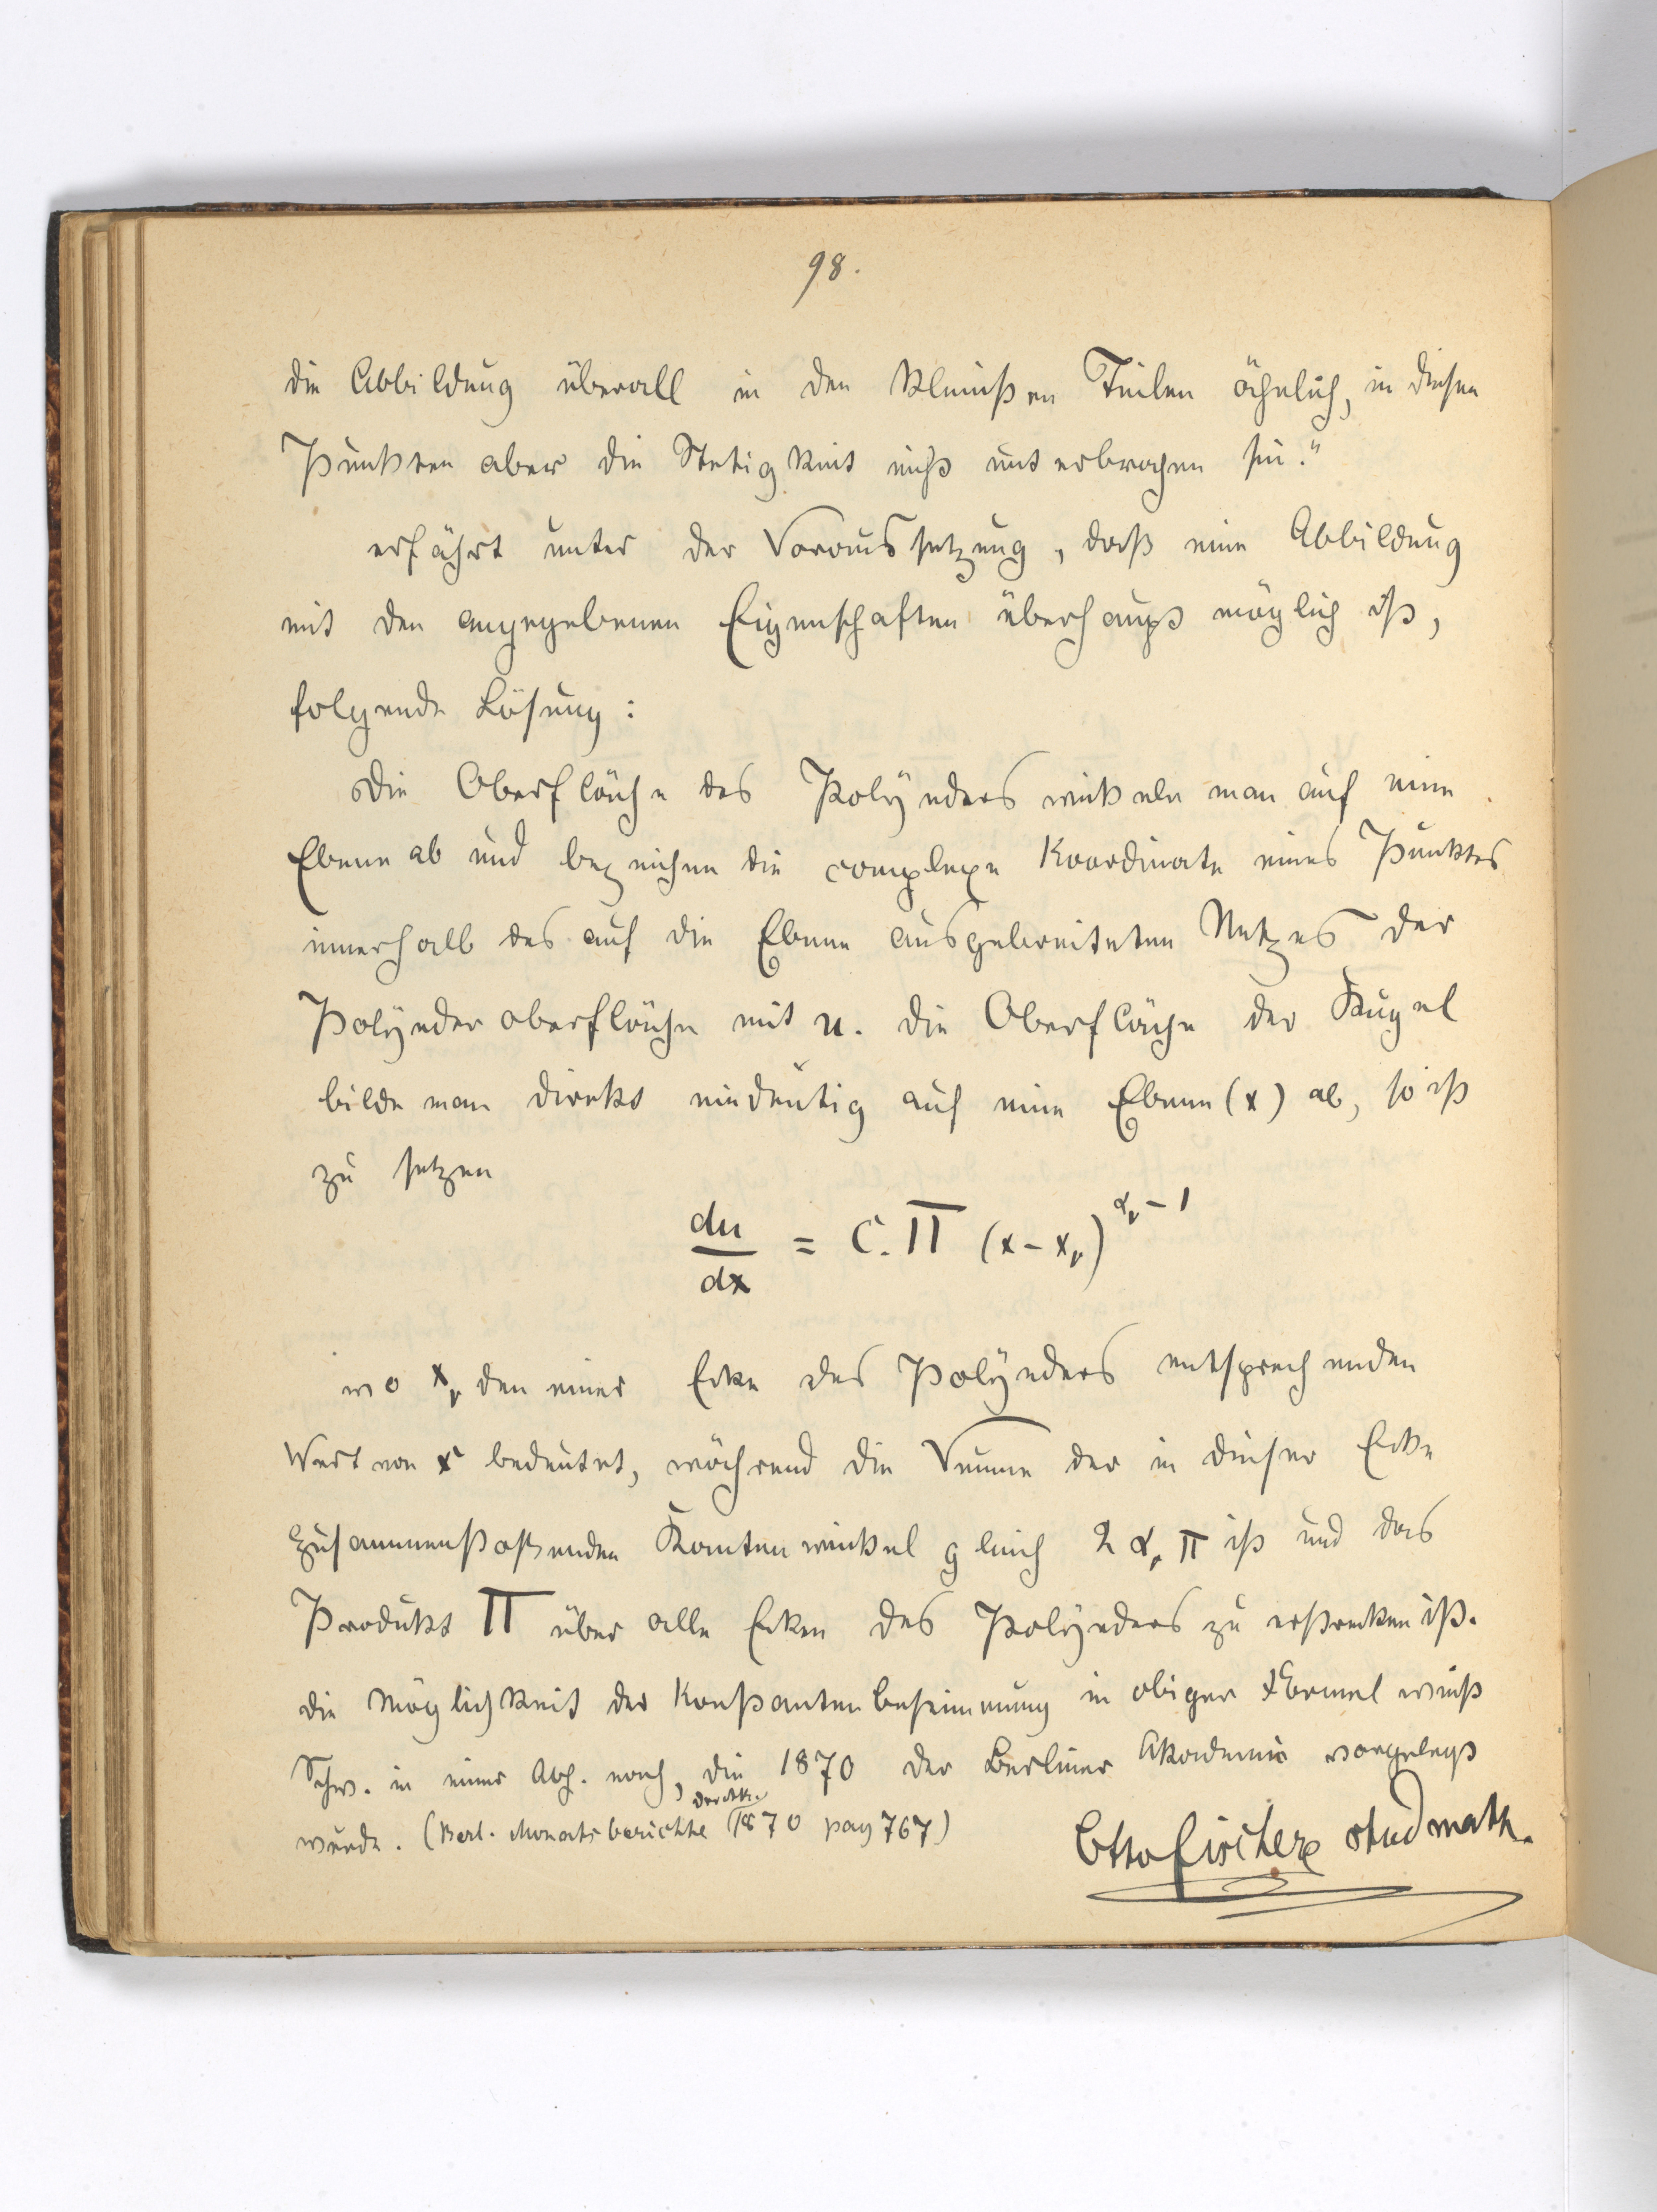 98.
die Abbildung überall in den kleinsten Teilen ähnlich, in diesen
Punkten aber die Stetigkeit nicht unterbrochen sei."
erfährt unter der Voraussetzung, daß eine Abbildung
mit den angegebenen Eigenschaften überhaupt möglich ist,
folgende Lösung:
Die Oberfläche des Polyeders wickele man auf eine
Ebene ab und bezeichne die complexe Koordinate eines Punktes
innerhalb des auf die Ebene ausgebreiteten Netzes der
Polyederoberfläche mit u. die Oberfläche der Kugel
bilde man direkt eindeutig auf eine Ebene (x) ab, so ist
zu setzen
du/dx = C. Π (x - xᵥ)^(αᵥ - 1)
wo xᵥ den einer Ecke des Polyeders entsprechenden
Wert von x bedeutet, während die Summe der in dieser Ecke
zusammenstoßenden Kantenwinkel gleich 2 αᵥ π ist und das
Produkt Π über alle Ecken des Polyeders zu erstrecken ist.
die Möglichkeit der Konstantenbestimmung in obiger Formel weist
Schw. in einer Abh. nach, die 1870 der Berliner Akademie vorgelegt
der Ak.
wurde. (Berl. Monatsberichte 1870 pag 767)
Otto Fischer stud math.